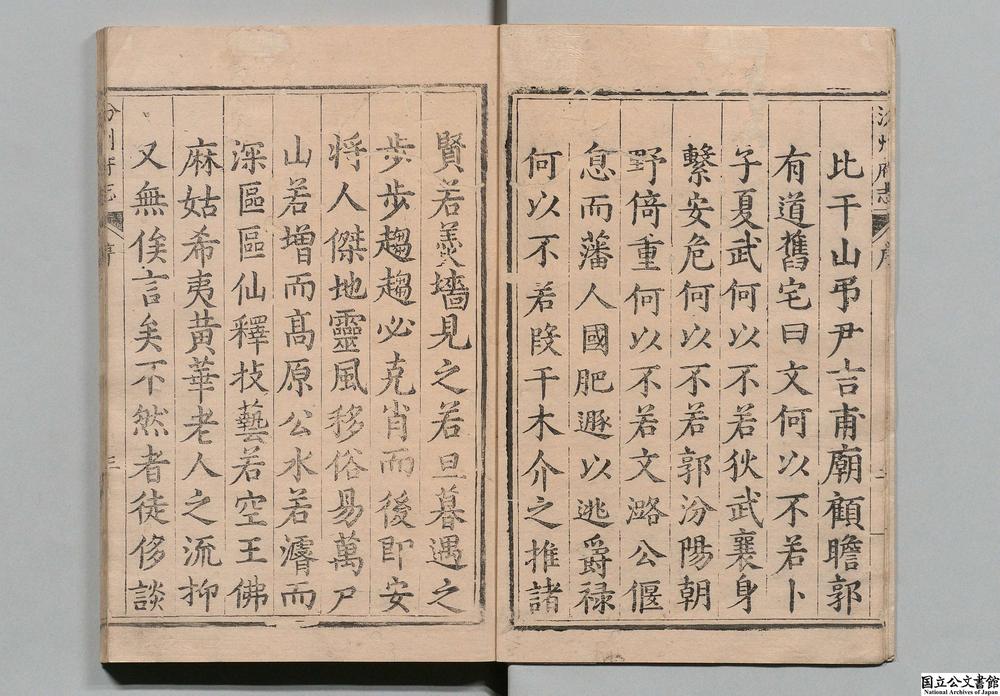 汾州府志 序
比干山弔尹吉甫廟顧瞻郭
有道舊宅曰文何以不若卜
子夏武何以不若狄武襄身
繫安危何以不若郭汾陽朝
野倚重何以不若文潞公偃
息而藩人國肥遯以逃爵祿
何以不若段干木介之推諸
賢若羹墻見之若旦暮遇之
步步趨趨必克肖而後即安
將人傑地靈風移俗易萬戶
山若增而高原公水若濬而
深區區仙釋技藝若空王佛
麻姑希夷黃華老人之流抑
又無俟言矣不然者徒侈談
汾州府志 序 三
国立公文書館
National Archives of Japan